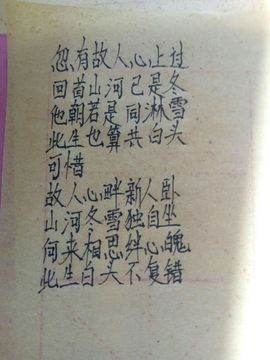 忽有故人心上过
回首山河已是冬
他朝若是同淋雪
此生也算共白头
可惜
故人心畔新人卧
山河冬雪独自坐
何来相思绊心魄
此生白头不复错